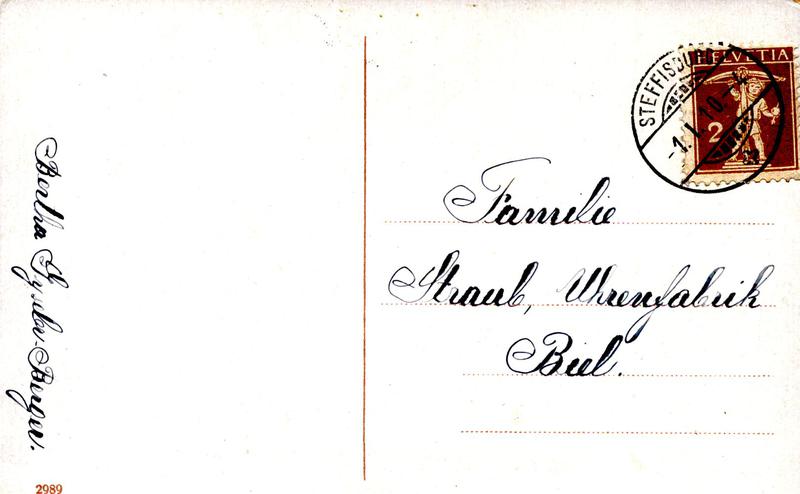 Bertha Gysler-Berger.
2989
STEFFISBURG
-1.I.10.-4
HELVETIA
2
Familie
Straub, Uhrenfabrik
Biel.